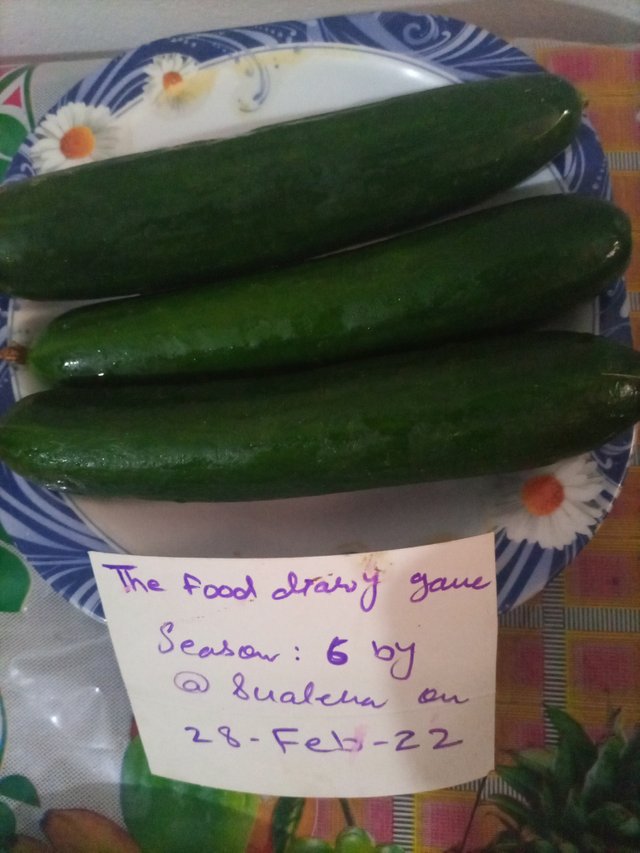 The Food diary game
Season: 6 by
@ on
28-Feb-22